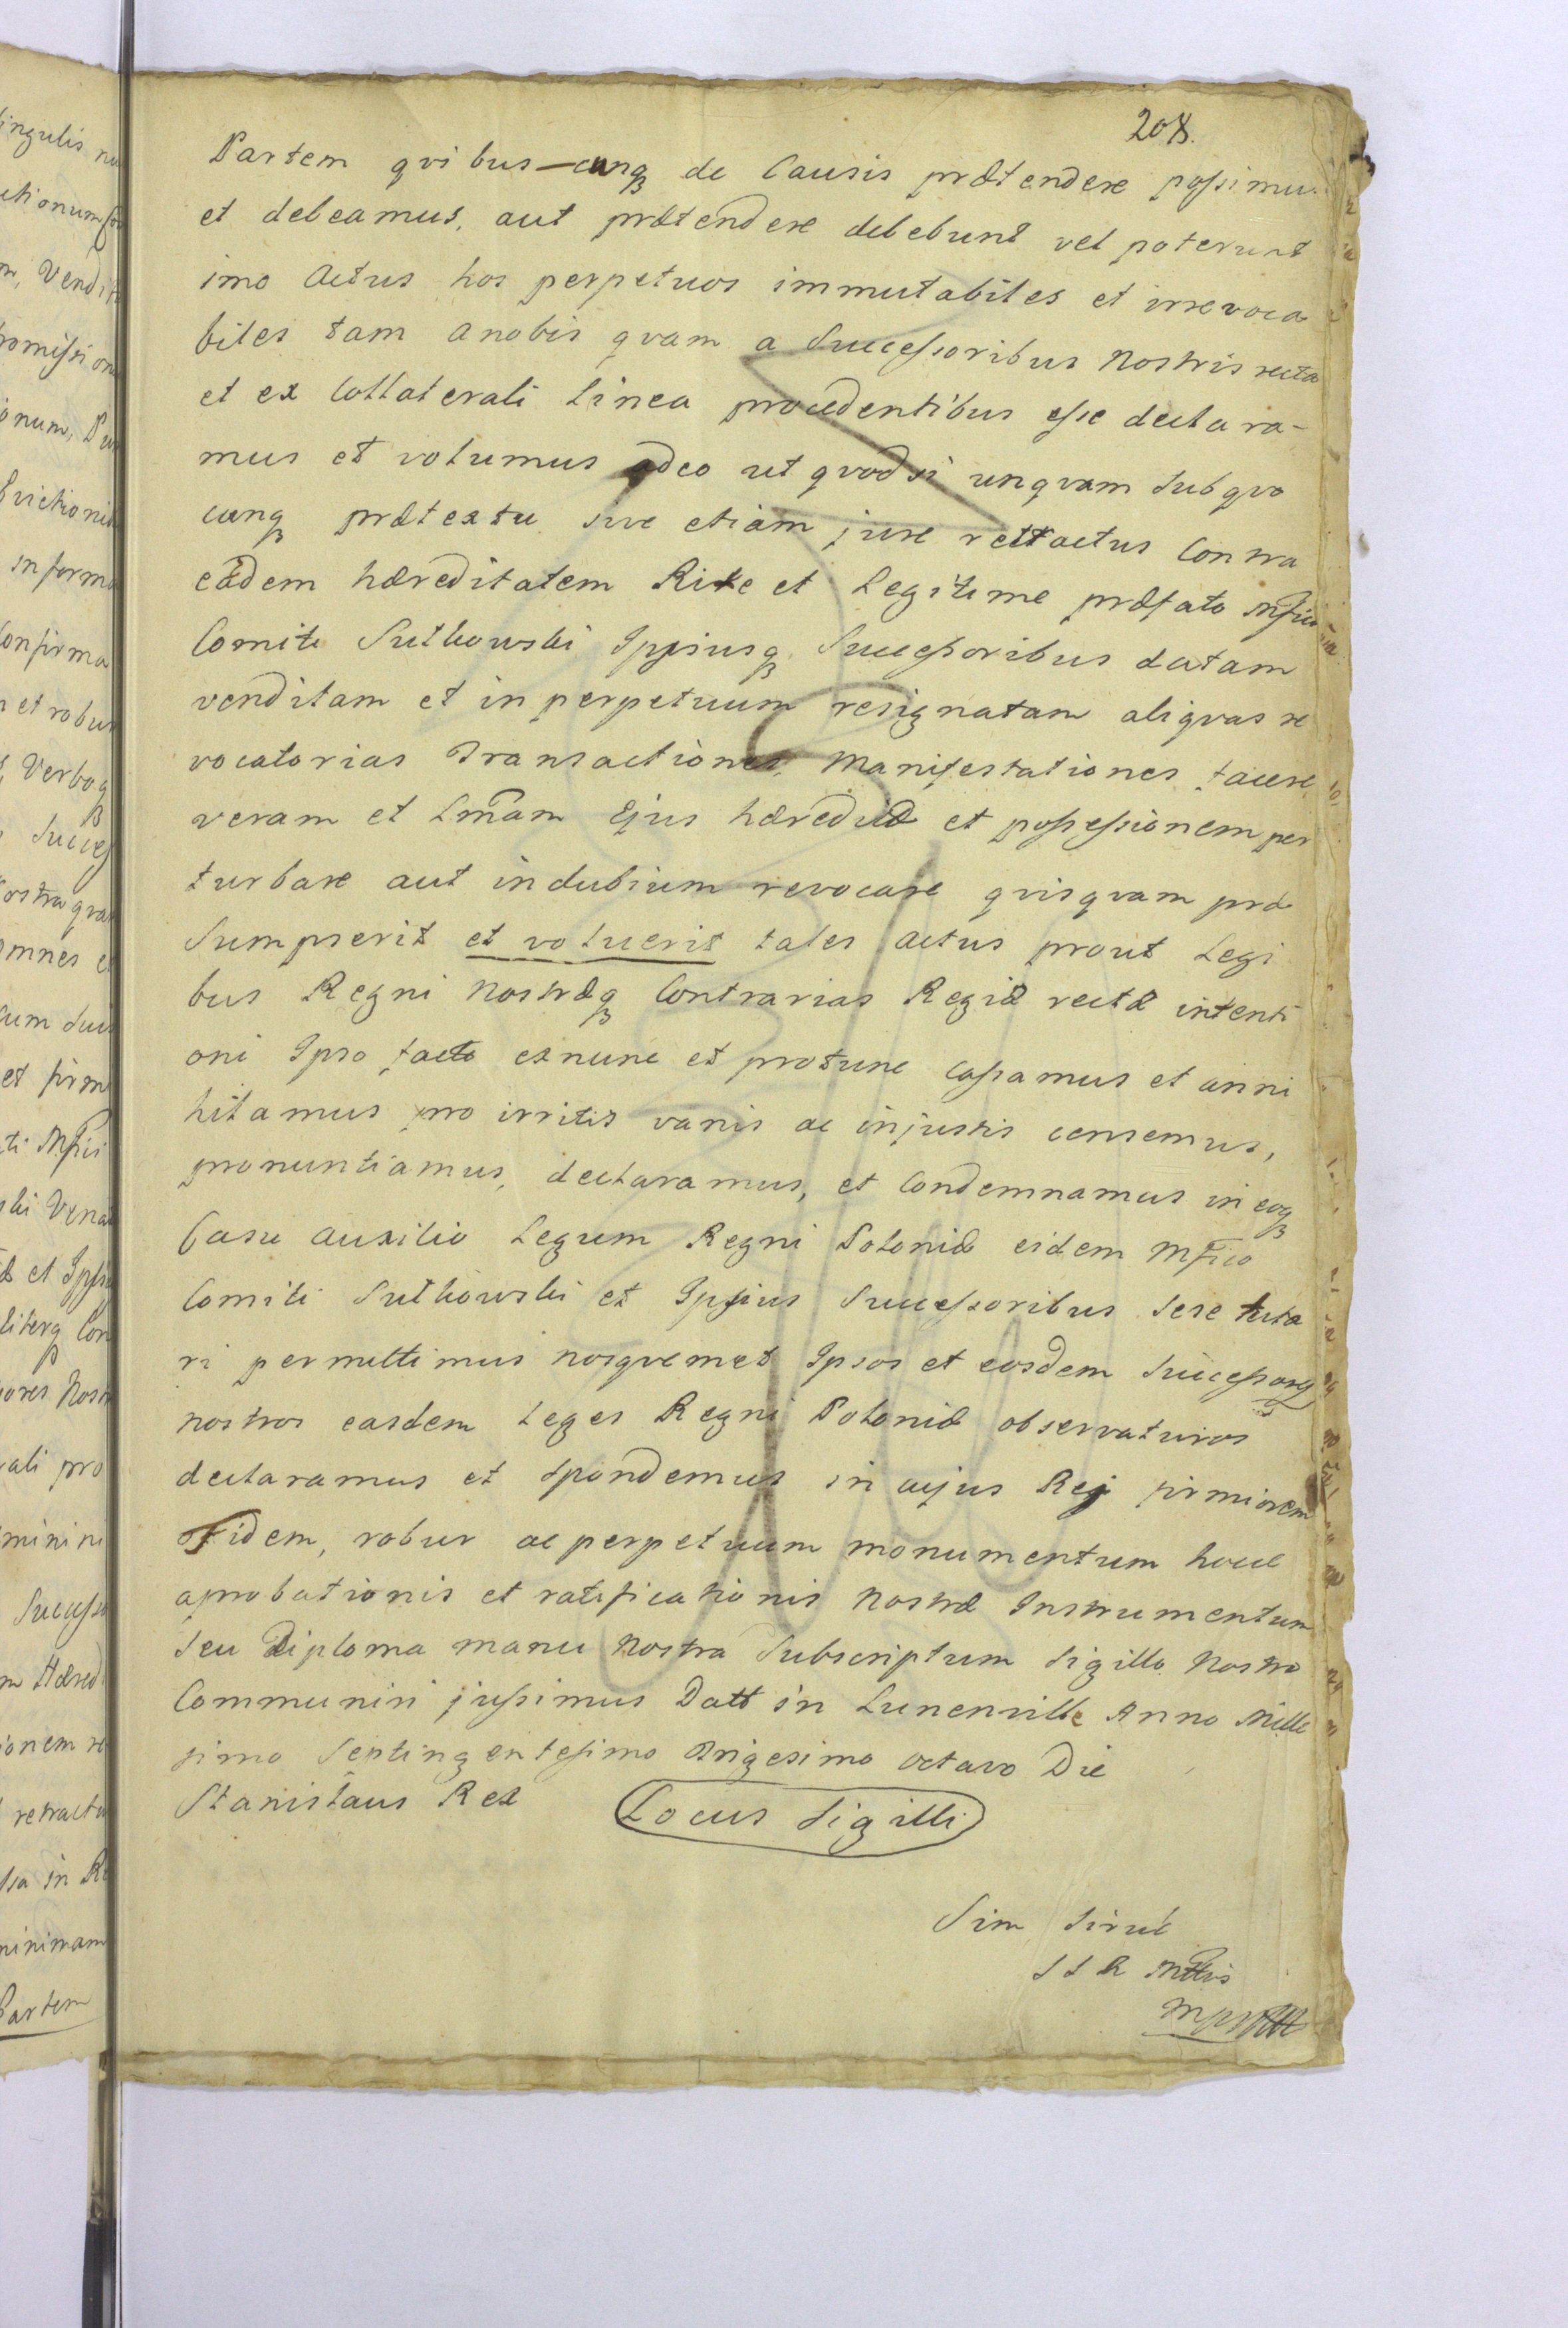 208.
Partem qvibus-cunq de Causis prætendere possimus
et debeamus, aut prætendere debebunt vel poterunt
imo Actus hos perpetuos immutabiles et irrevoca
biles tam anobis qvam a Successoribus Nostris recta
et ex Collaterali Linea procedentibus esse declara-
mus et volumus adeo ut qvodsi unqvam subqvo
cunq prætextu sive etiam jure rettractus Contra
eadem hæreditatem Rite et Legitime præfato Mfico
Comiti Sulkowski Ipsiusq Successoribus datam
venditam et in perpetuum resignatam aliqvas re
vocatorias Transactiones, Manifestationes facere
veram et Lmam Ejus hæredid et possessionem per
turbare aut indubium revocare qvisqvam præ
Sumpserit et voluerit tales Actus prout Legi
bus Regni Nostræq Contrarias Regiæ rectæ intenti
oni Ipso facto exnunc et protunc cassamus et anni
hilamus pro irritis vanis ac injustis censemus,
pronuntiamus, declaramus, et Condemnamus in eoq
Casu auxilio Legum Regni Poloniæ eidem Mfico
Comiti Sulkowski et Ipsius Successoribus sese tuta
ri permittimus nosqvemet Ipsos et eosdem Successores
nostros easdem Leges Regni Poloniæ observaturos
declaramus et spondemus in cujus Rej firmiorem
fidem, robur ac perpetuum monumentum hocce
aprobationis et ratificationis Nostræ Instrumentum
seu Diploma manu Nostra Subscriptum sigillo Nostro
Communiri jussimus Datt in Lunenville Anno Mille
simo Septingentesimo Trigesimo Octavo Die
Stanislaus Rex Locus Sigilli
Sim
S S R Mttis
Mpp